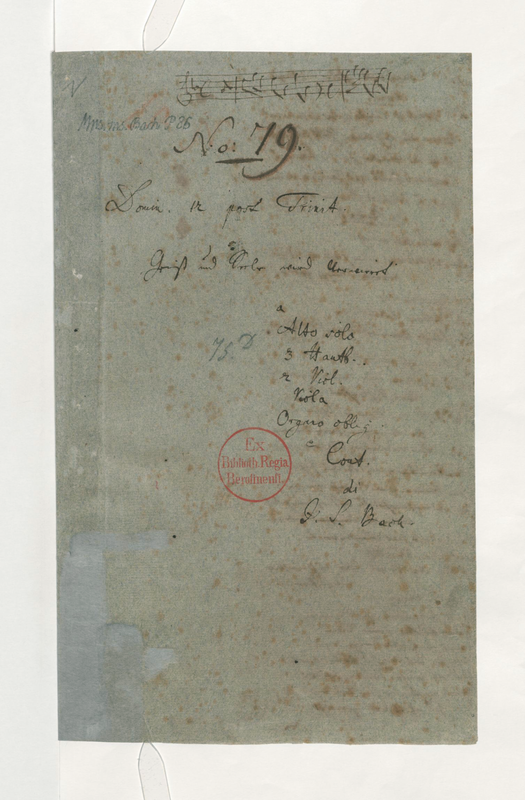 Mus. ms. Bach P 86
No: 79.
Domin. 12 post Trinit.
Geist und Seele wird verwirret
a
Alto solo
3 Hautb.
2 Viol.
Viola
Organo oblig.
e
Cont.
di
J. S. Bach.
75.
Ex
Biblioth. Regia
Berolinensi.